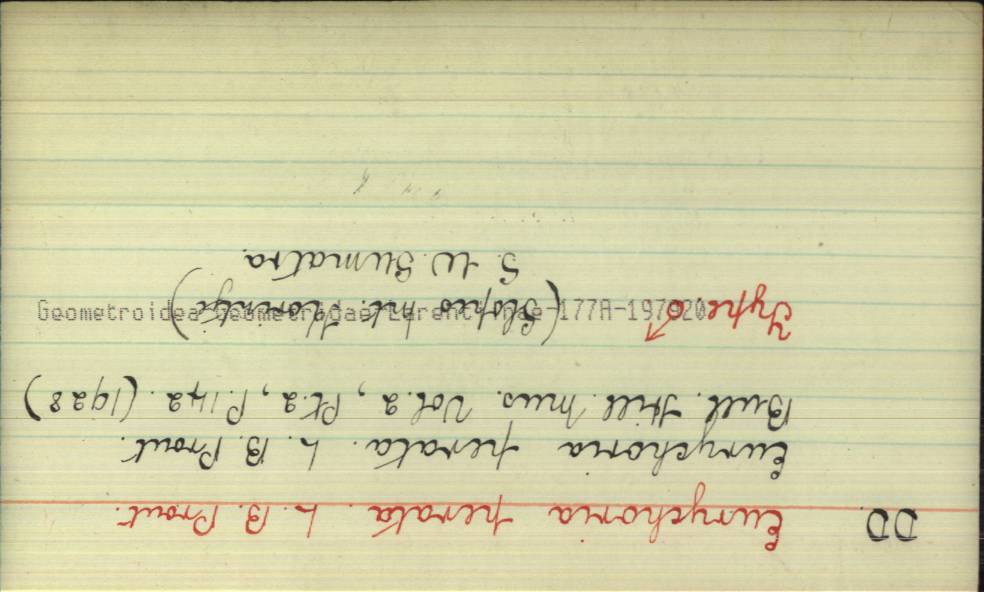 DD. Eurychoria perata. L. B. Prout.
Eurychoria perata. L. B. Prout.
Bull. Hill Mus. Vol. 2, Pt. 2, P. 142. (1928)
Type ♂ (Slopes Mt. Korintji)
S. W. Sumatra.
Geometroidea Geometridae Larentiinae-177A-197020